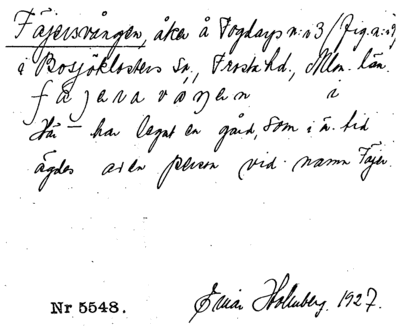 Fäjersvången, åker å Fogdarys n:o 3 (fig. a:9),
i Bosjöklosters Sn., Frosta hd., Mlm. län.
fajersvaŋen i
Här har legat en gård, som i ä. tid
ägdes av en person vid namn Fäjer.
Nr 5548. Einar Hollenberg. 1927.